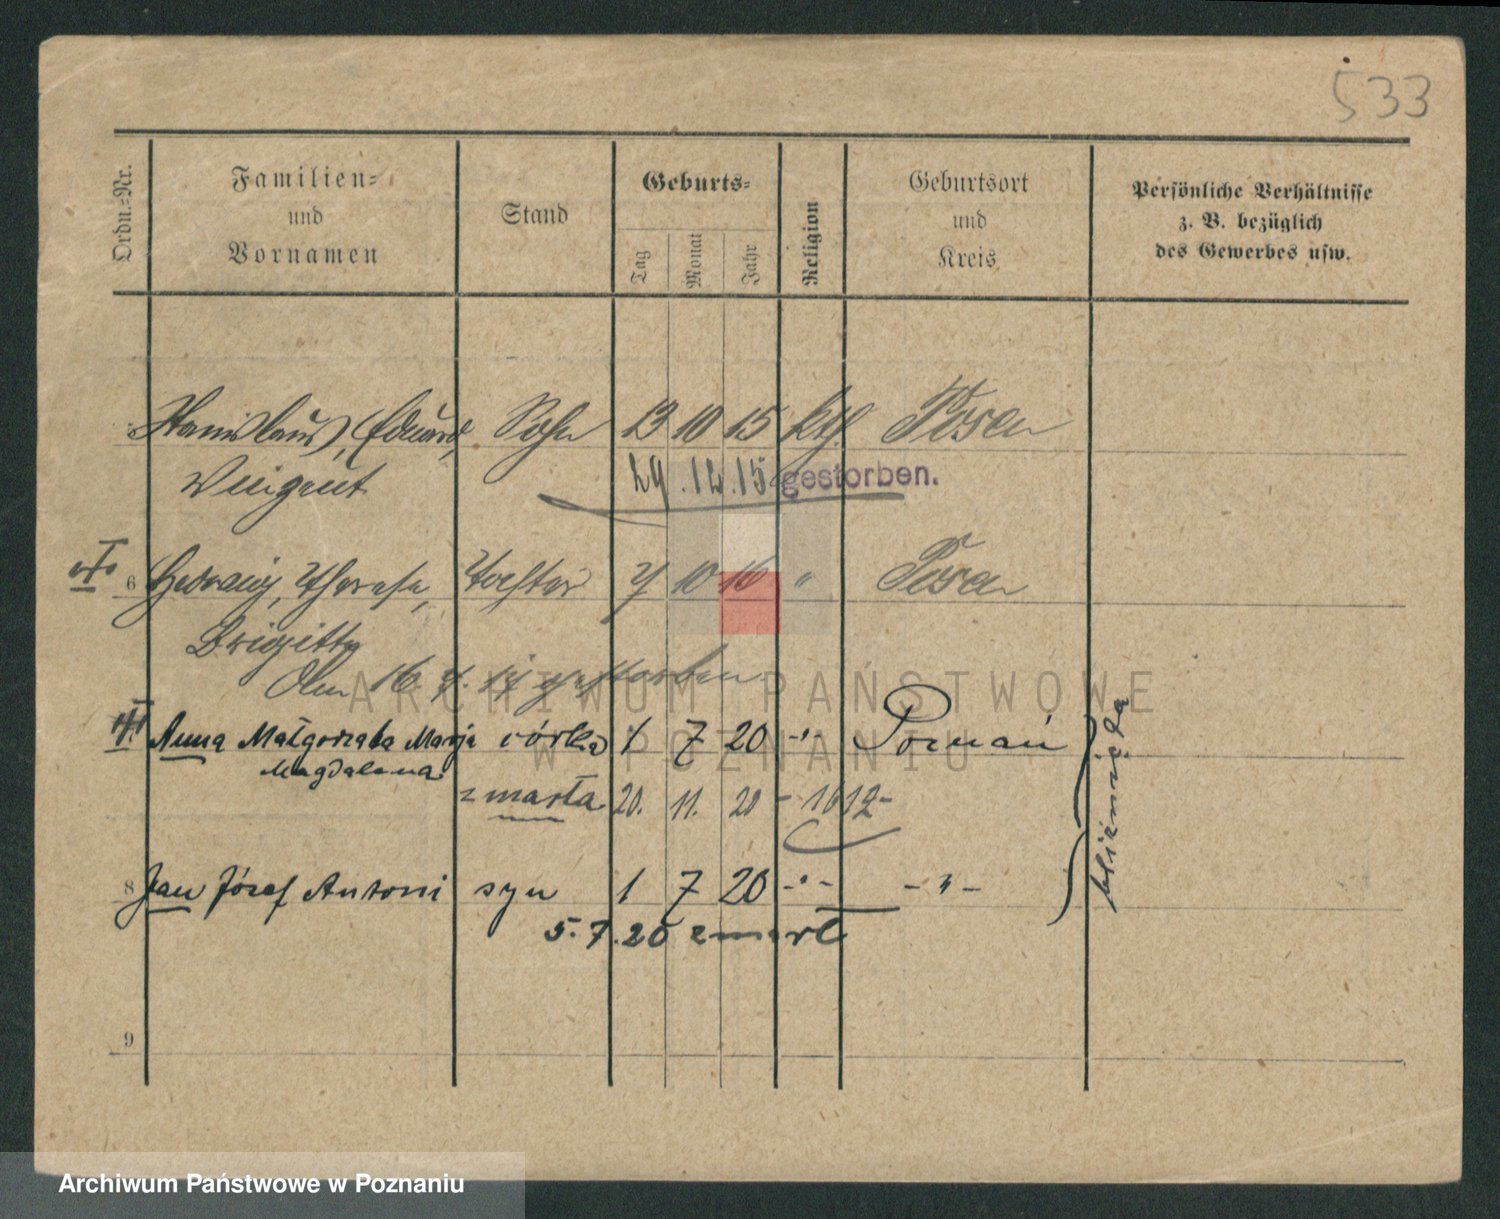 533
Ordn.-Nr.
Familien-
und
Vornamen
Stand
Geburts-
Tag
Monat
Jahr
Religion
Geburtsort
und
Kreis
Persönliche Verhältnisse
z. B. bezüglich
des Gewerbes usw.
Stanislaus, Eduard, Sohn 13 10 15 kth. Posen
29.12.15 gestorben.
6 Hedwig, Therese, Tochter 7 10 16 " Posen
Brigitte
Am 16. 7. 17 gestorben
Anna Małgorzata Marja córka 1 7 20 -"- Poznań
Magdalena
zmarła 20. 11. 20 - 1612 -
bliźnięta
8 Jan Józef Antoni syn 1 7 20 -"- -"-
5.7.20 zmarł
9
ARCHIWUM PAŃSTWOWE
W POZNANIU
Archiwum Państwowe w Poznaniu